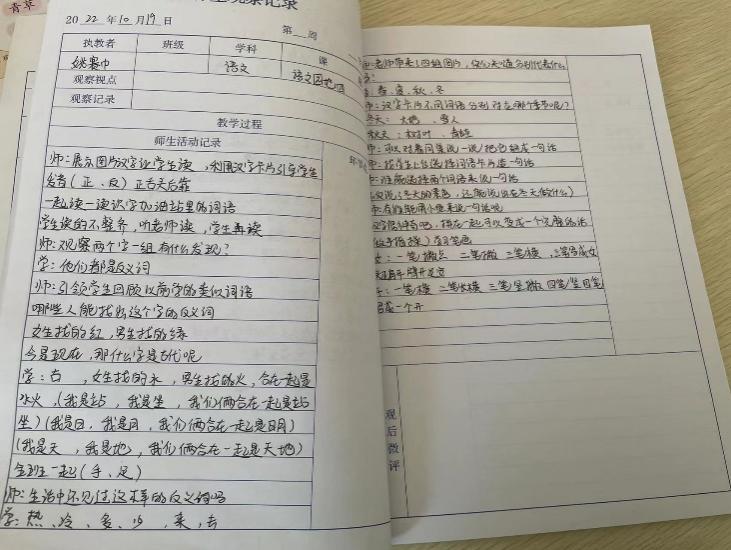 青草
观察记录
2022年10月19日
第 周
执教者 班级 学科 课
姚 中 语文 语文园地四
观察视点
观察记录
教学过程
师生活动记录
师:展示图片汉字让学生读,利用汉字卡片引导学生
(正、反)正右天后靠
一起读一读识字加油站里的词语
学生读的不整齐,听老师读,学生再读
师:观察两个字一组有什么发现?
学:他们都是反义词
师:引领学生回顾以前学的类似词语
哪些人能找出这个字的反义词
女生找的红,男生找的绿
今是现在,那什么字是古代呢
学:古 ,女生找的水,男生找的火,合在一起是
水火,(我是站,我是坐,我们俩合在一起是站
坐)(我是日,我是月,我们俩合在一起是日月)
(我是天,我是地,我们俩合在一起是天地)
全班一起(手、足)
师:生活中还见过这样的反义词吗
学:热、冷、多、少、来、去
老师带来了四组图片,你们知道分别代表什么
春、夏、秋、冬
师:汉字卡片不同词语分别对应哪个季节呢?
冬天:大 、雪人
秋天:树叶、
师:可以对着同桌说一说把它组成一句话
师:找学生上台选择词语卡片造一句话
师:谁能选择两个词语来说一句话
(说了冬天的景色,还能说说在冬天做什么)
师:有谁能用 来说一句话呢
可以变成一个完整的话
笔画
女:一笔撇点 二笔撇 三笔横
一笔横 二笔长横 三笔竖撇 四笔竖
成一个开
观后微评